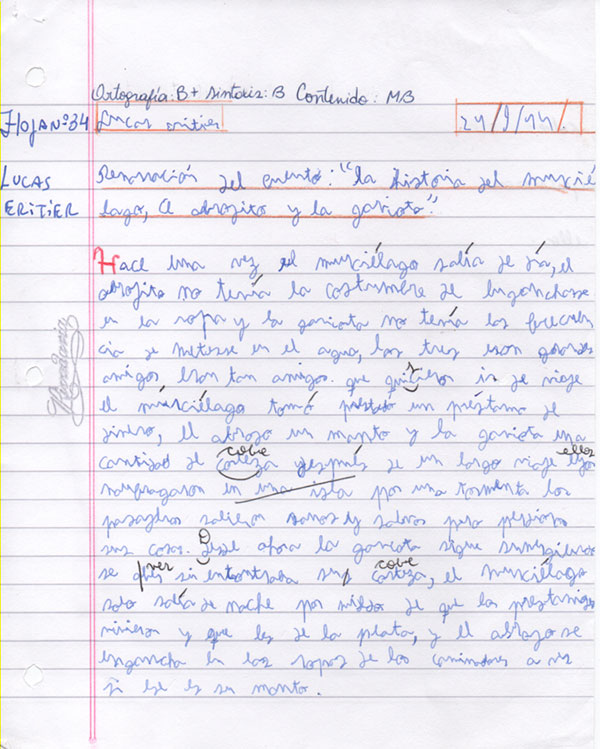 Ortografía: B+ sintaxis: B Contenido: MB
HOJA Nº34 Lucas eritier 24/9/14.
LUCAS Renarración del cuento: "la historia del murcié
ERITIER lago, el abrojito y la gaviota".
Hace una vez, el murciélago salía de día, el
abrojito no tenía la costumbre de engancharse
en la ropa y la gaviota no tenía las frecuen
cia de meterse en el agua, los tres eran grandes
amigos eran tan amigos. que quisieron ir de viaje
el murciélago tomó prestado un préstamo de
dinero, el abrojo un manto y la gaviota una
cobre ellos
cantidad de corteza después de un largo viaje
naufragaron en una isla por una tormenta los
pasajeros salieron sanos y salvos pero perdieron
sus cosas. Desde ahora la gaviota sigue sumergiendo
ver cobre
se sin encontraba su corteza, el murciélago
solo salía de noche por miedo de que los prestamigo
vinieron y que les de la plata, y el abrojo se
engancha en las ropas de los caminadores a ver
si ese es su manto.
Rivadavia